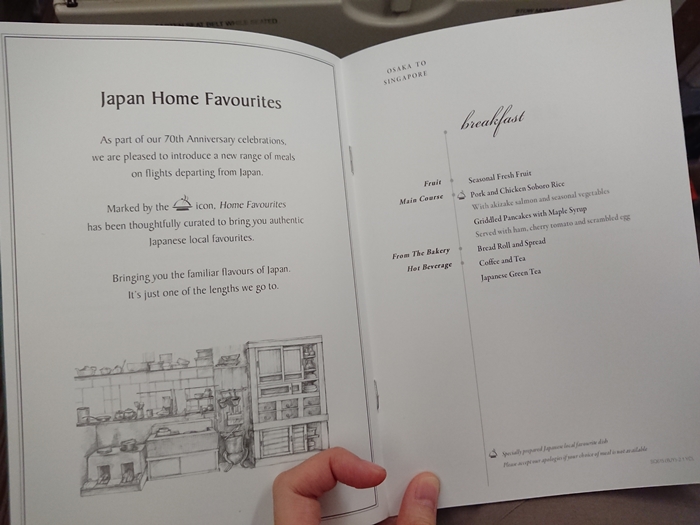 Japan Home Favourites
As part of our 70th Anniversary celebrations,
we are pleased to introduce a new range of meals
on flights departing from Japan.
Marked by the icon, Home Favourites
has been thoughtfully curated to bring you authentic
Japanese local favourites.
Bringing you the familiar flavours of Japan.
It's just one of the lengths we go to.
OSAKA TO
SINGAPORE
breakfast
Fruit
Seasonal Fresh Fruit
Main Course
Pork and Chicken Soboro Rice
With akizake salmon and seasonal vegetables
Griddled Pancakes with Maple Syrup
Served with ham, cherry tomato and scrambled egg
From The Bakery
Bread Roll and Spread
Hot Beverage
Coffee and Tea
Japanese Green Tea
Specially prepared Japanese local favourite dish
Please accept our apologies if your choice of meal is not available